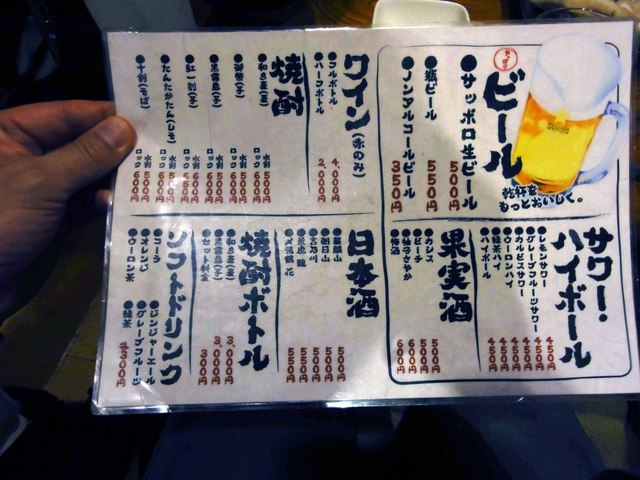 ビール
乾杯を
もっとおいしく。
SAPPORO
●サッポロ生ビール 500円
●瓶ビール 550円
●ノンアルコールビール 350円
ワイン(赤のみ)
●フルボトル 4,000円
●ハーフボトル 2,000円
焼酎
水割 500円
ロック 600円
●黒霧島(芋) 水割 500円
ロック 600円
●紅一刻(芋) 水割 500円
ロック 600円
●たんたかたん(しそ) 水割 500円
ロック 600円
●十割(そば) 水割 500円
ロック 600円
サワー・ハイボール
●レモンサワー 450円
●グレープフルーツサワー 450円
●カルピスサワー 450円
●ウーロンハイ 450円
●緑茶ハイ 450円
●ハイボール 450円
果実酒
●カシス 500円
●ピーチ 500円
600円
●梅酒 600円
日本酒
500円
●朝日山 500円
500円
550円
550円
焼酎ボトル
3,000円
●黒霧島(芋) 3,000円
●セット料金 300円
ソフトドリンク
●コーラ
●オレンジ
●ウーロン茶
●ジンジャーエール
●グレープフルーツ
●緑茶
各300円